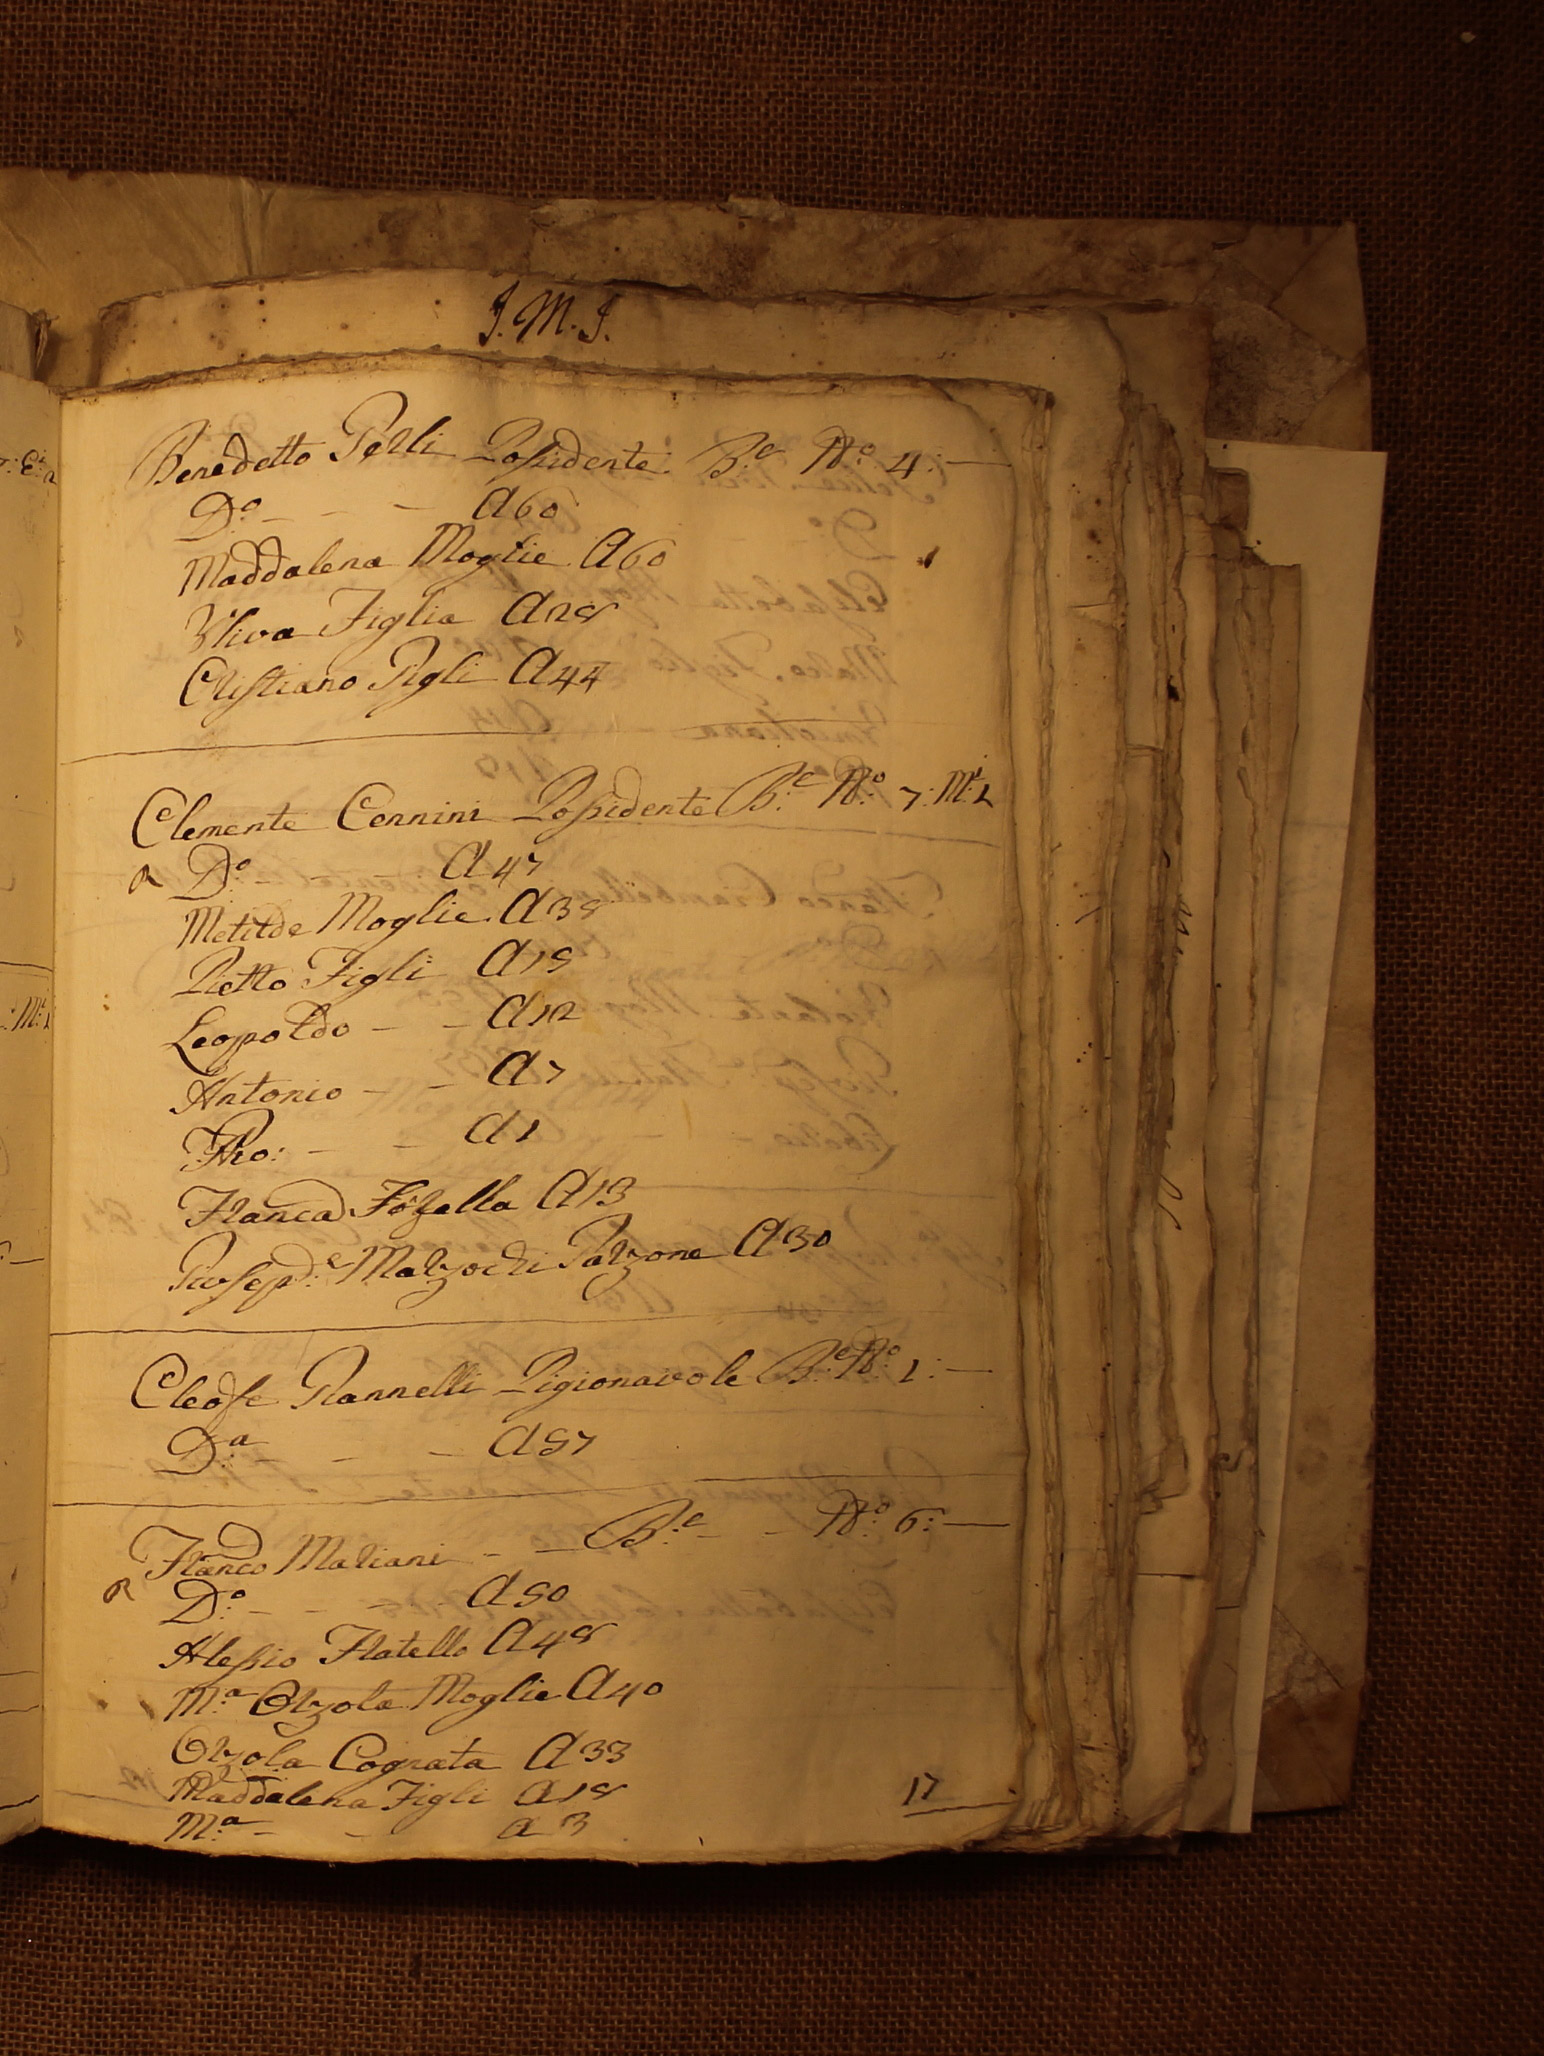 J. M. J.
Benedetto Perli Possidente B.e N.o 4: —
D.o - - - A 60
Maddalena Moglie A 60
Figlia A 28
Cristiano Figli A 44
Clemente Cennini Possidente B.e N.o 7: M.i 1
a D.o - - A 47
Metilde Moglie A 38
Pietro Figli A 15
Leopoldo - - A 12
Antonio - - A 7
- - A 1
Franca A 13
Giusep.e Marzochi Garzone A 30
Cleofe Giannelli Pigionavole B.e N.o 1: —
D.a - - A 57
Franco Mariani - - B.e - - N.o 6: —
a D.o - - - A 50
Alessio Fratello A 48
M.a Orzola Moglie A 40
Orzola Cognata A 33
Maddalena Figli A 18
M.a - - A 3
17